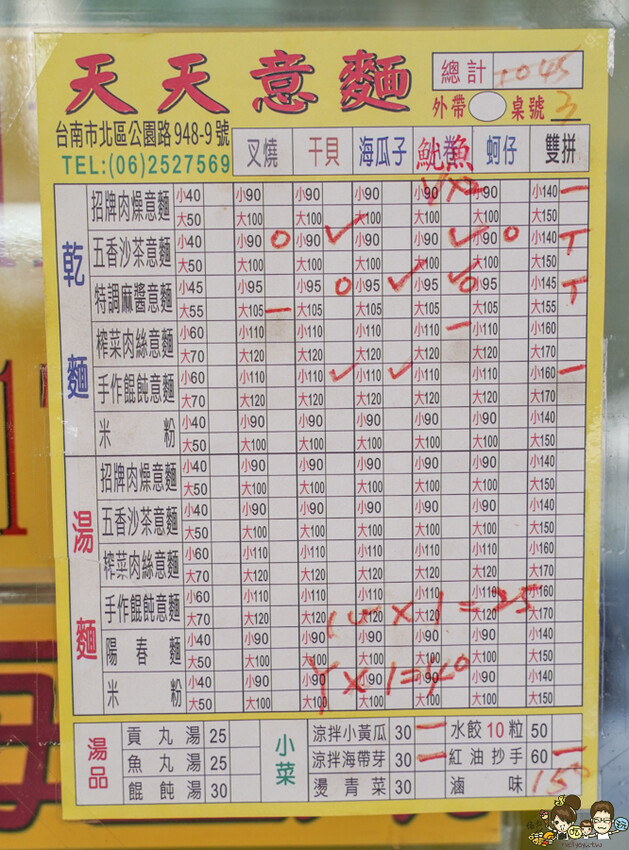 天天意麵
總計 1045
外帶 桌號 3
台南市北區公園路948-9號
TEL:(06)2527569
叉燒 干貝 海瓜子 魷魚 蚵仔 雙拼
乾麵
招牌肉燥意麵 小40 小90 小90 小90 小90 小90 小140 一
大50 大100 大100 大100 大100 大100 大150
五香沙茶意麵 小40 小90 小90 小90 小90 小90 小140 T
大50 大100 大100 大100 大100 大100 大150
特調麻醬意麵 小45 小95 小95 小95 小95 小95 小145 T
大55 大105 一 大105 大105 大105 大105 大155
榨菜肉絲意麵 小60 小110 小110 小110 小110 一 小110 小160
大70 大120 大120 大120 大120 大120 大170
手作餛飩意麵 小60 小110 小110 小110 小110 小110 小160 一
大70 大120 大120 大120 大120 大120 大170
米粉 小40 小90 小90 小90 小90 小90 小140
大50 大100 大100 大100 大100 大100 大150
湯麵
招牌肉燥意麵 小40 小90 小90 小90 小90 小90 小140
大50 大100 大100 大100 大100 大100 大150
五香沙茶意麵 小40 小90 小90 小90 小90 小90 小140
大50 大100 大100 大100 大100 大100 大150
榨菜肉絲意麵 小60 小110 小110 小110 小110 小110 小160
大70 大120 大120 大120 大120 大120 大170
手作餛飩意麵 小60 小110 小110 小110 小110 小110 小160
大70 大120 大120 大120 大120 大120 大170
x1=25
陽春麵 小40 小90 小90 小90 小90 小90 小140
大50 大100 大100 大100 大100 大100 大150
x1=40
米粉 小40 小90 小90 小90 小90 小90 小140
大50 大100 大100 大100 大100 大100 大150
湯品
貢丸湯 25
魚丸湯 25
餛飩湯 30
小菜
涼拌小黃瓜 30 一 水餃10粒 50
涼拌海帶芽 30 一 紅油抄手 60 一
燙青菜 30 滷味 150